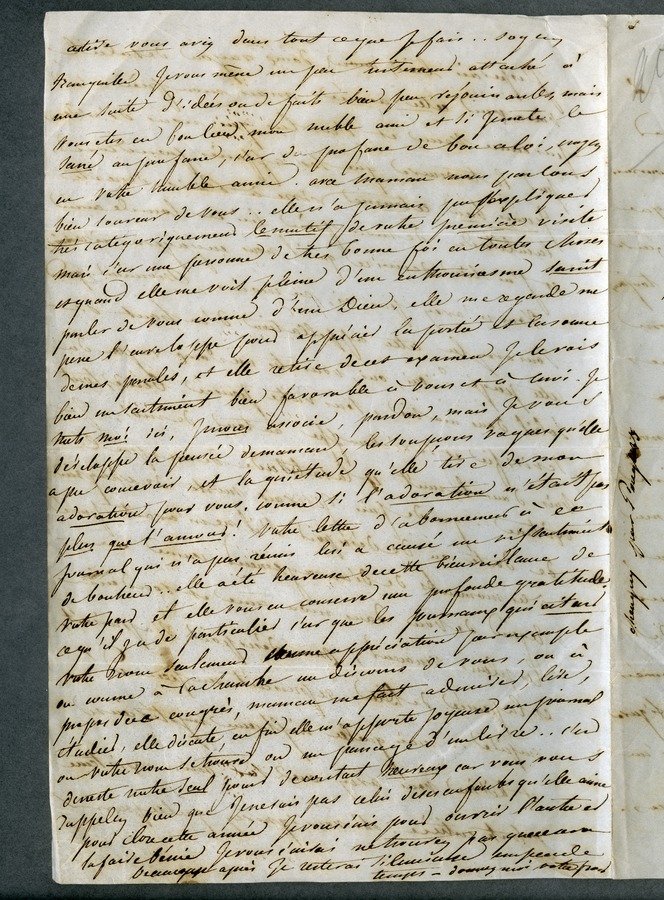 vous avez dans tout ce que je fais.. soyez
tranquille, je vous mène un peu attaché à
une suite d'idées ou de faits bien peu réjouissantes, mais
vous êtes en bon lieu, mon noble ami et si je mets le
sacré au profane, c'est du profane de bon aloi, croyez
en votre humble amie. avec maman nous parlons
bien souvent de vous.. elle n'a jamais pu s'expliquer
très catégoriquement le motif de votre première visite
mais c'est une personne de très bonne foi en toutes choses
et quand elle me voit pleine d'un enthousiasme saint
parler de vous comme d'un Dieu, elle me regarde me
l'enveloppe pour apprécier la portée et
de mes pensées, et elle retire de cet examen je le vois
bien un sentiment bien favorable à vous et à moi. Je
mets moi ici, associée, pardon, mais je vous
développe la pensée de maman, les soupçons vagues qu'elle
a pu concevoir, et la quiétude qu'elle tire de mon
adoration pour vous, comme si l'adoration n'était pas
plus que l'amour! votre lettre d'abonnement à ce
journal qui n'a pas réussi lui a causé un
de bonheur.. elle a été heureuse de cette bienveillance de
votre part et elle vous en conserve une profonde gratitude
ce qu'il y a de particulier c'est que les journaux qui citent
votre nom seulement appréciation par exemple
ou comme à un discours de vous, ou à
propos de congrès, maman me fait admirer, lire,
étudier, elle enfin elle m'apporte joyeuse un journal
ou votre nom se trouve ou un passage d'un livre.. c'est
de reste notre seul point de contact heureux car vous vous
rappelez bien que je ne suis pas celui des enfants qu'elle aime
pour clore cette année je vous écris pour ouvrir l'autre et
la faire bénie je vous écrirai
beaucoup après je resterai silencieuse un peu de
temps - donnez moi votre